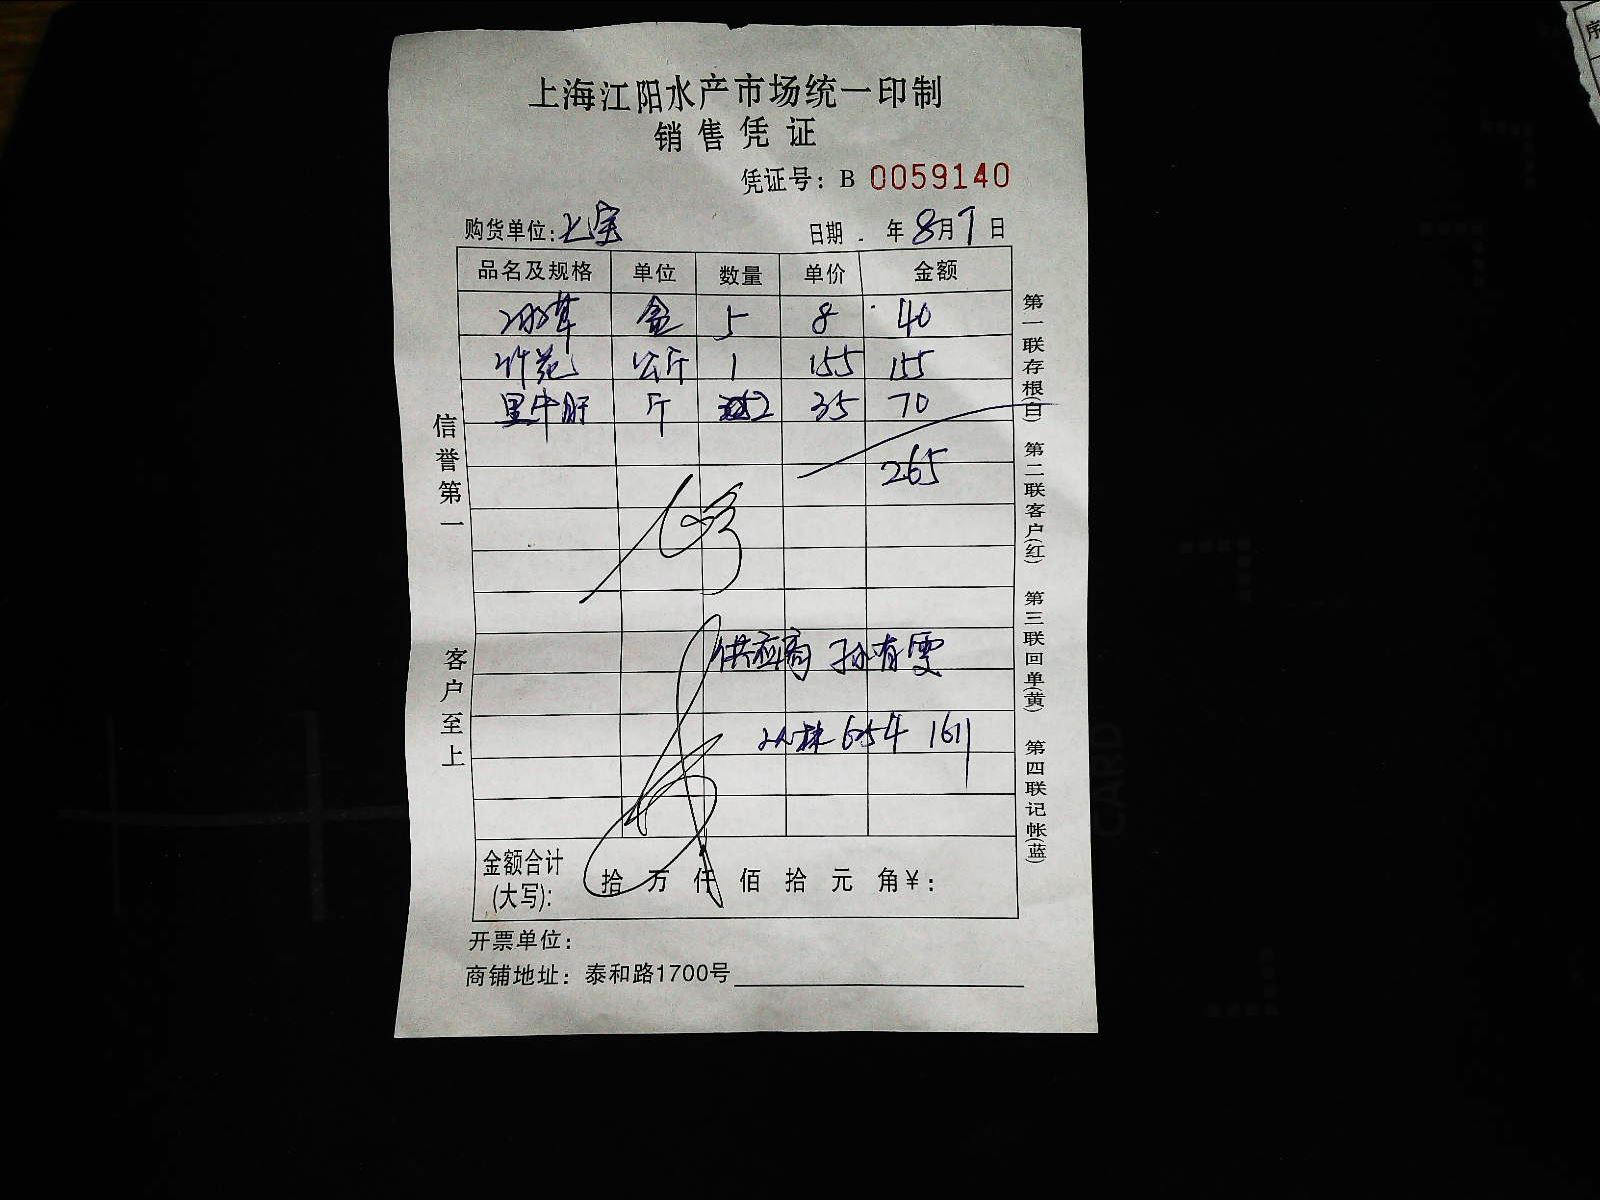 上海江阳水产市场统一印制
销售凭证
凭证号：B 0059140
购货单位：上宝 日期 年 8月7日
品名及规格 单位 数量 单价 金额
盒 5 8 40
公斤 1 155 155
黑牛肝 斤 2 35 70
265
供应商 孙有雯
654 1611
金额合计(大写)： 拾 万 仟 佰 拾 元 角¥：
开票单位：
商铺地址：泰和路1700号
信誉第一
客户至上
第一联存根(白) 第二联客户(红) 第三联回单(黄) 第四联记帐(蓝)
CARD
序